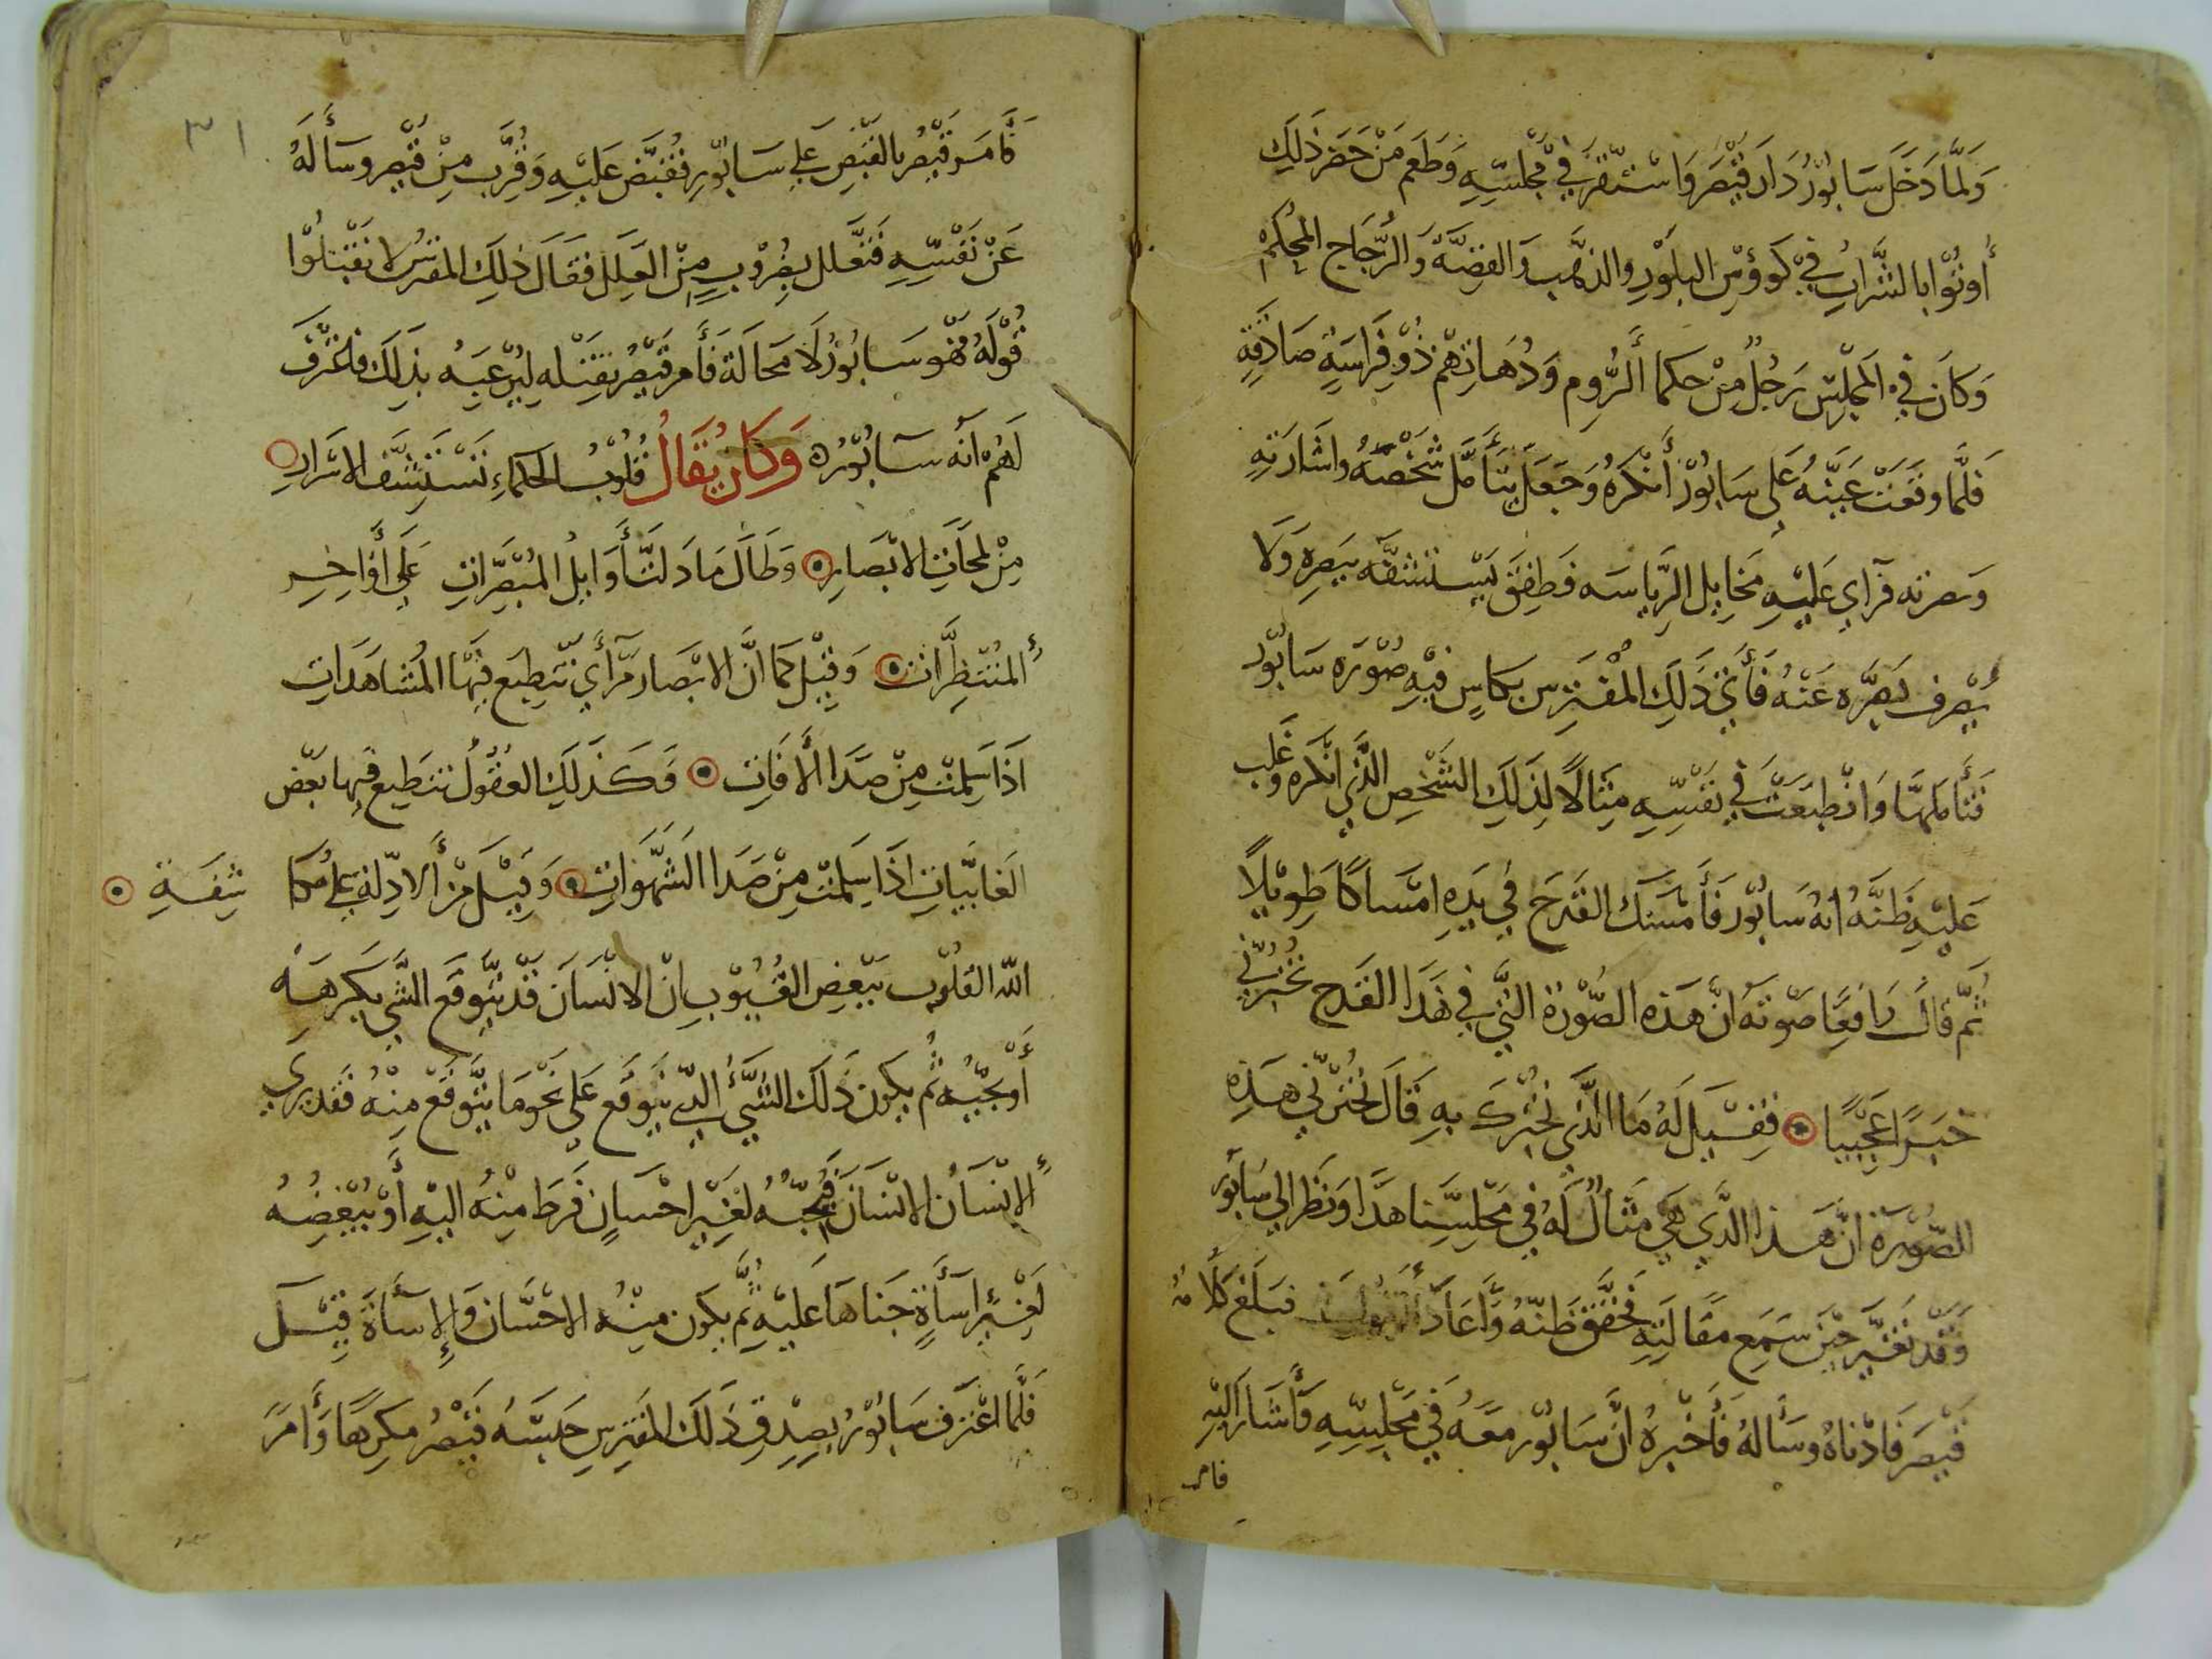 وَلَمَّا دَخَلَ سَابُوْرُ دَارَ قَيْصَرَ وَاسْتَقَرَّ فِيْ مَجْلِسِهِ وَطَعِمَ مَنْ حَضَرَ ذَلِكَ
أُوتُوْا بالشَّرَابِ فِيْ كَوؤسِ البِلَّوْرِ والذهَّب وَالفِضَّةَ وَالزُّجَاج المُحْكَمْ
وَكَانَ فِيْ المَجْلِسِ رَجُلٌ مِنْ حكما الرُّومِ وَدُهَاتِهْم ذُوْ فِرَاسَةٍ صَادِقَةٍ
فَلَّمَا وقَعَتْ عَيْنُهُ عَلَى سَابُوْرَ أَنْكَرَهُ وَجَعَلَ يَتَأَمَّل شَخْصَهُ وإشَارَتِهِ
وَصَرته فرَآي عَلَيْهِ مَخَايِل الرِيَاسَه فَطَفِقَ يَسْتشفَّه بِبَصَرِهِ وَلَا
يَصْرِف بَصَرَه عَنْهُ فَأُتِيَ ذَلِكَ المُتْفَرِس بِكَاسٍ فيْهِ صُوْرَة سَابُوْر
فَتَأَملَهَا وَانْطَبَعَتْ فِي نفْسِهِ مِثَالًا لِذَلِكَ الشَّخْصِ الَّذي انْكَره وَغَلب
عَلَيْهِ ظَنَّهُ انه سَابُوْر فَأَمْسَكَ القَدَحَ في يَدِهِ امْسَاكًا طَوِيْلًا
ثُمَّ قَالَ رَافِعًا صَوْتَهُ انَّ هَذِه الصُّوْرَةَ التَّي فِي هَذَا القَدَحِ تُخْبِرُنِي
خَبَرًا عَجِيْبًا ⊙ فَقِيْلَ لَهُ مَا الَّذي تُخْبِرُكَ بهِ قَالَ تُخْبِرُنِي هَذِهِ
الصُّوْرَة انَّ هَذا الَّذي هِيَ مِثَالٌ لَهُ فِي مَجْلِسِنا هَذا وَنَظَر الي سَابُور
وَقَدْ تَغَيَّر حِيْنَ سَمِعَ مقَالَتِهِ فَحَقَّقَ ظَنَّهُ وَأَعَادَ القَولَ فَبَلَغ كَلَامُهُ
قَيْصَر فَادْنَاهُ وسَأَلهُ فَأَخْبرهُ انَّ سَابُوْر مَعَهُ فِي مَجْلِسِهِ وَأَشَارَ اليْهِ
فامر
٣١
فَأَمَر قَيْصَرُ بالقَبْضِ عَلي سَابُوْر فَقُبِضَ عَلَيْهِ وَقُرَّبَ مِنْ قَيْصَر وسَأَلَهُ
عَنْ نَفْسِهِ فَتَعَّلل بضُرُوْبٍ مِنْ العِلَلِ فقَالَ ذلِكَ المتفرسُ لا تَقْبَلُوْا
قُوْلَهُ فَهْو سَابُوْرُ لَا مَحَالَة فَأَمَرَ قَيْصَرُ بِقَتْلِهِ لِيُرْعِبَهُ بذلِكَ فاعْتَرَفَ
لَهُمْ انَه سَابُوْرْ ه وَكَانَ يُقَالُ قُلوْبُ الحكماءِ تَسْتَشِفُّ الاسْرَارِ
مِنْ لمَحَاتِ الابْصَارِ ⊙ وَطَالَ مَا دَلَتْ أَوَايلُ المُبْصَراتِ عَلَي أَوَاخِرِ
المُنْتَظَرَاتْ ⊙ وَقِيْلَ كَمَا انَّ الابْصَار مَرَآي تَنطبِع فِيْهَا المُشَاهَدَاتِ
اذَا سَلِمتْ مِنْ صَدَا الآفَاتِ ⊙ فَكَذَلِكَ العُقُوْلُ تنَطِبع فيها بَعْض
الغَايبَّاتِ اذَا سَلِمتْ مِنْ صَدَا الشَّهَوَاتِ ⊙ وَقِيْلَ مِنْ الادِلّةِ عَلي مُكَا شِفَةِ ⊙
اللّه القُلوْب بَبْعضِ الغُيُوْبِ انْ الانْسَانَ قَدْ يَتَوقَع الشَّي يَكرهَهُ
أَوْ يُحْبُهُ ثُم يَكون ذَلَكَ الشَّيْئُ الذي يَتَوقع عَلَي نَحْوِ مَا يَتَوقَّعْ مِنْهُ فَقَد يَرَي
الإنْسَانُ الانْسَانَ فَيُحِبُّهُ لغَيْرِ احْسَانٍ فَرَطَ مِنْهُ اليْهِ أَوْ يُبْغِضُهُ
لَغِيْرِ اسَأَةٍ جَنَاهَا عَليْهِ ثُمَّ يَكون مِنْهُ الاحْسَان وَالإسَأَة قِيْلَ
فَلَمَا اعْتَرَف سَابُوْرُ بِصِدْقِ ذَلَكَ المتفَرِسِ حَبَسَهُ قَيْصَرُ مكرِهًا وَأَمَرَ